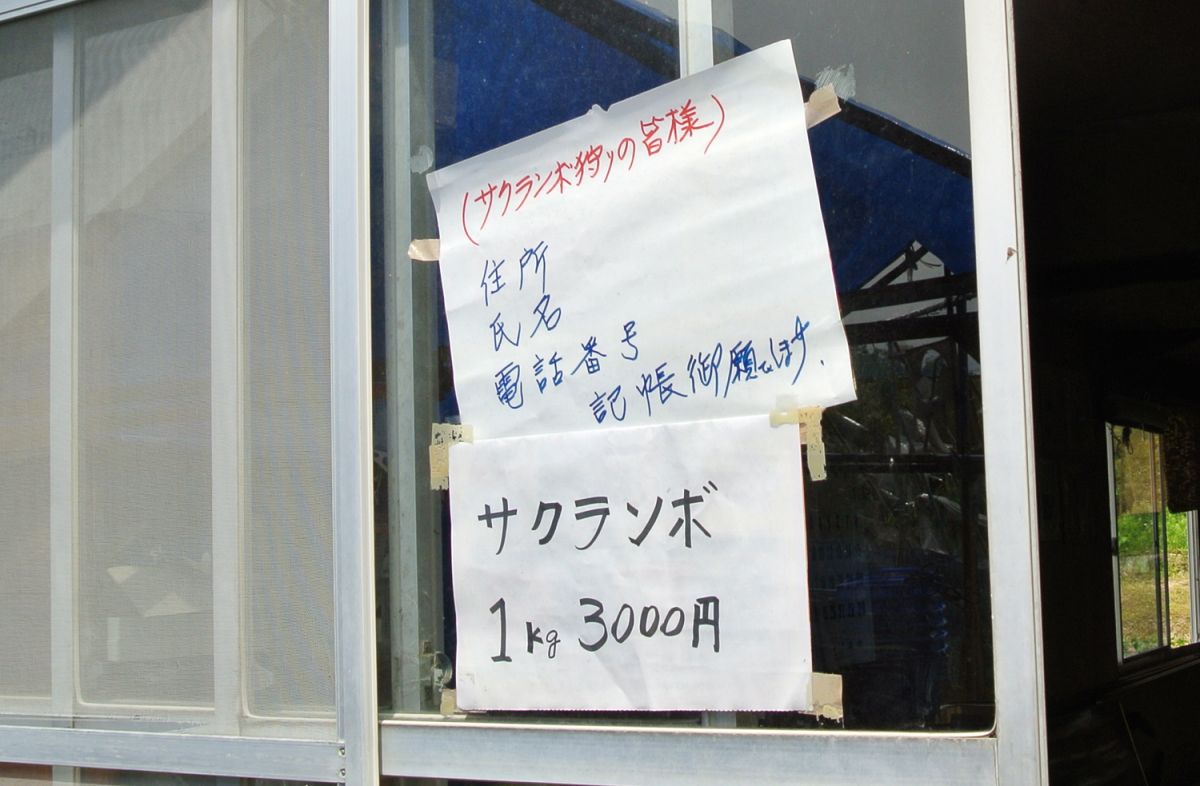 (サクランボ狩りの皆様)
住所
氏名
電話番号
記帳御願いします.
サクランボ
1kg 3000円